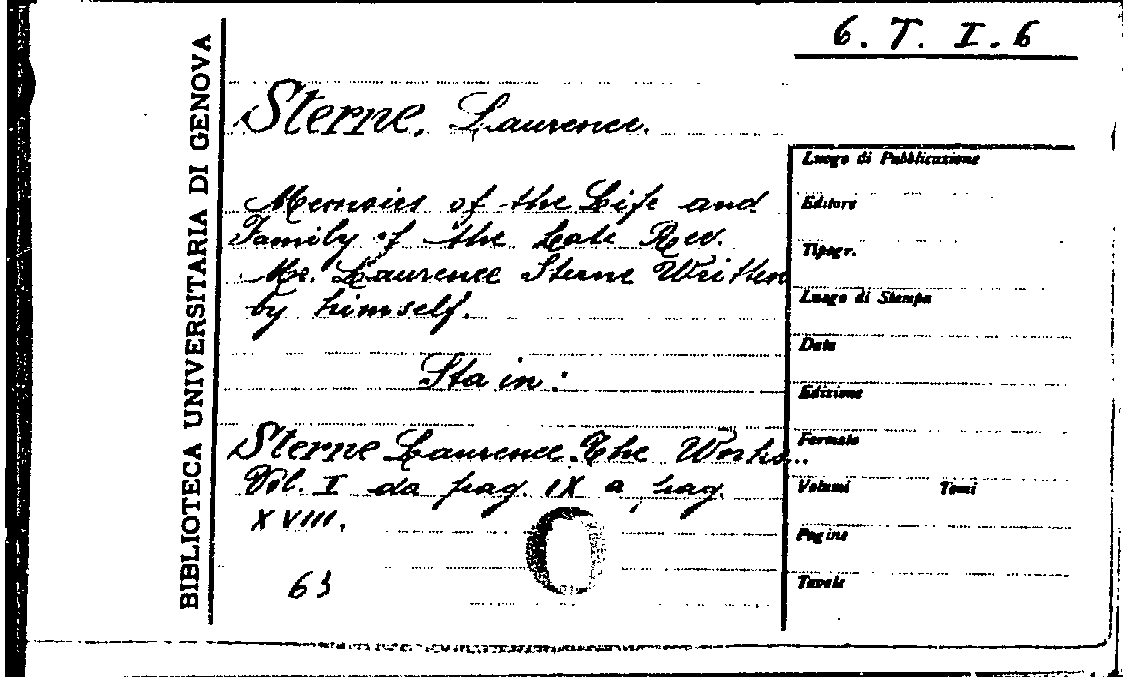 6. T. I. 6
BIBLIOTECA UNIVERSITARIA DI GENOVA
Sterne, Laurence.
Memoirs of the Life and
Family of the Late Rev.
Mr. Laurence Sterne Written
by himself.
Sta in:
Sterne Laurence. The Works...
Vol. I da pag. IX a pag.
XVIII.
63
Luogo di Pubblicazione
Editore
Tipogr.
Luogo di Stampa
Data
Edizione
Formato
Volumi Tomi
Pagine
Tavole